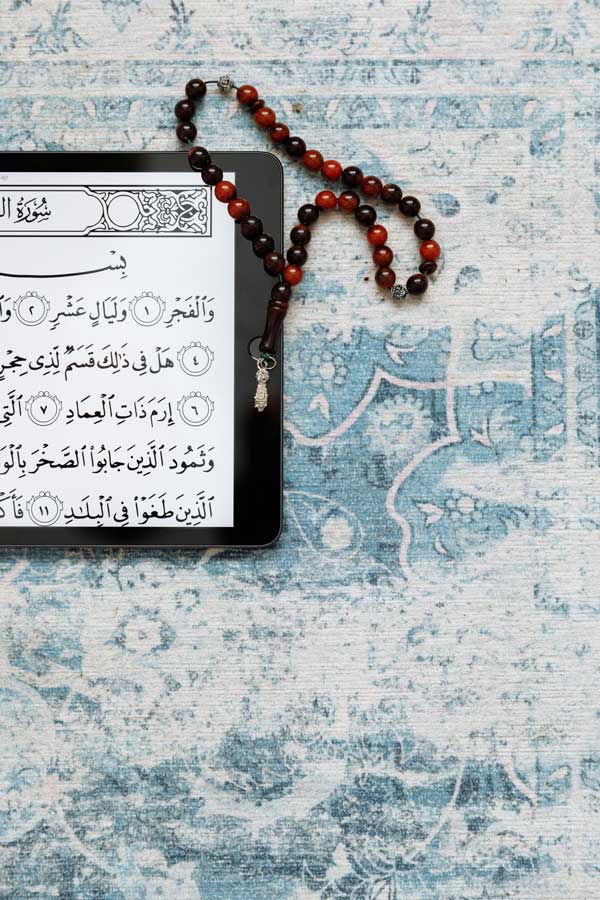 سُورَةُ ال
بِسـ
وَٱلْفَجْرِ ١ وَلَيَالٍ عَشْرٍ ٢ وَٱ
٤ هَلْ فِى ذَٰلِكَ قَسَمٌ لِّذِى حِجْرٍ
٦ إِرَمَ ذَاتِ ٱلْعِمَادِ ٧ ٱلَّتِى
وَثَمُودَ ٱلَّذِينَ جَابُوا۟ ٱلصَّخْرَ بِٱلْوَ
ٱلَّذِينَ طَغَوْا۟ فِى ٱلْبِلَـٰدِ ١١ فَأَكْـ